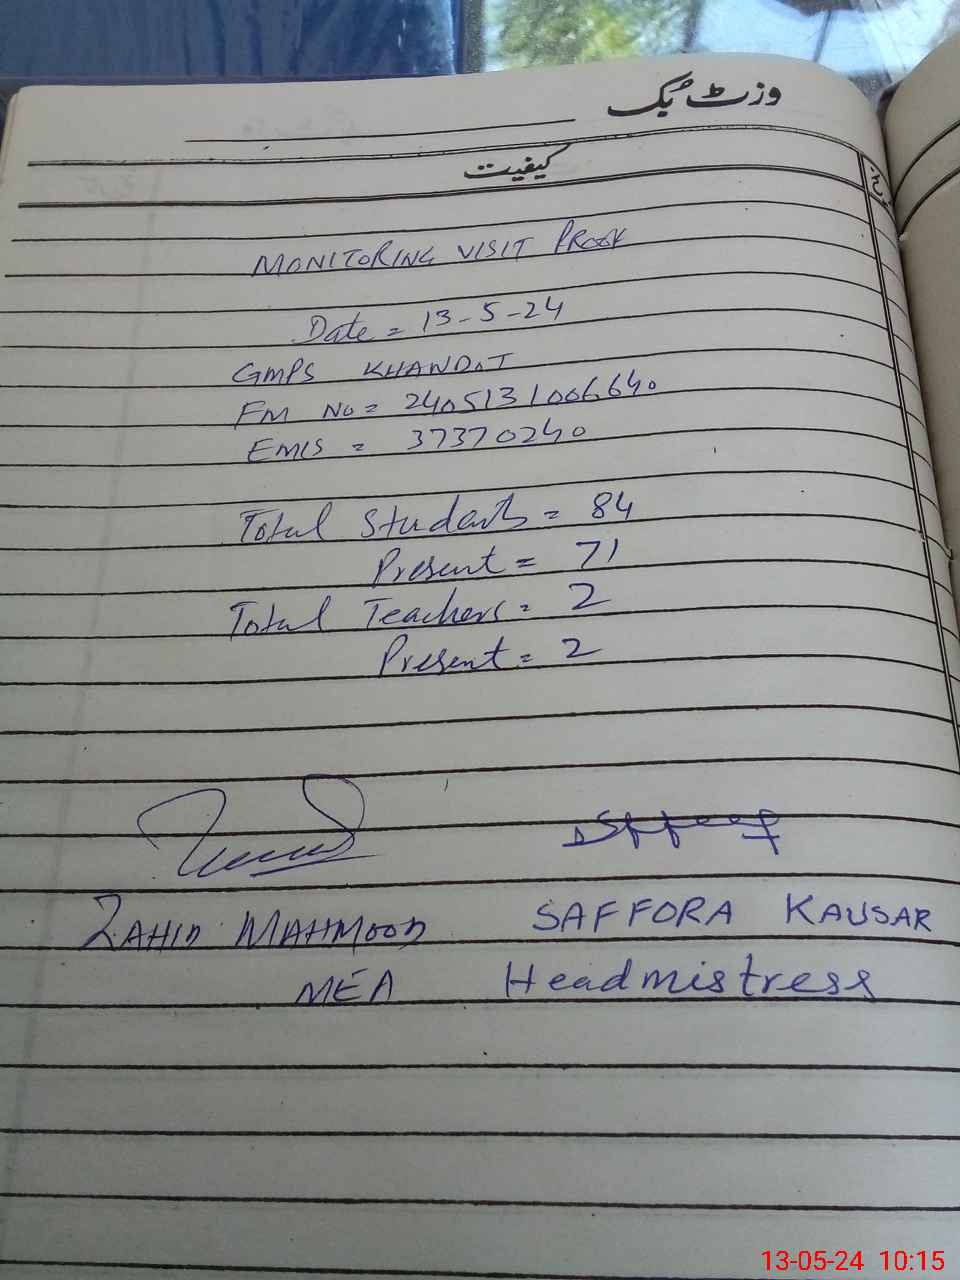 وزٹ بک
کیفیت
MONITORING VISIT PROOF
Date = 13-5-24
GMPS KHANDOT
FM No = 2405131006640
EMIS = 37370240
Total Students = 84
Present = 71
Total Teachers = 2
Present = 2
ZAHID MAHMOOD SAFFORA KAUSAR
MEA Headmistress
13-05-24 10:15